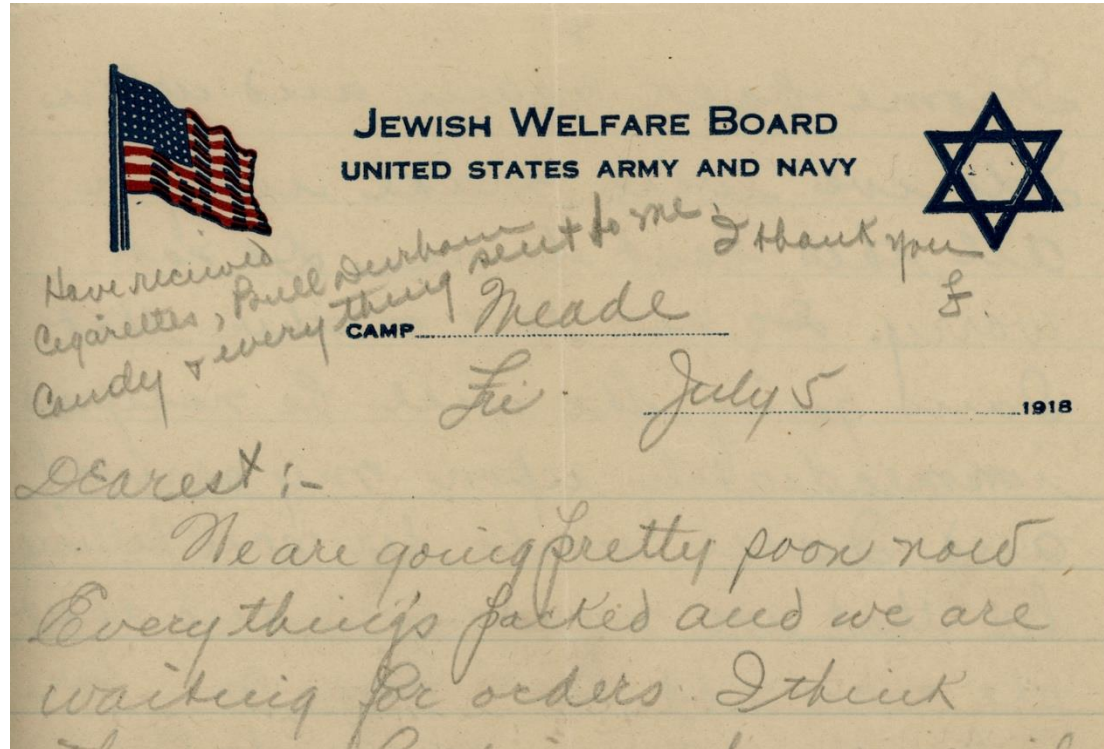 JEWISH WELFARE BOARD
UNITED STATES ARMY AND NAVY
Have received
Cigarettes, Bull Durham
Candy & everything sent to me.
I thank you
F.
CAMP Meade
Fri. July 5 1918
Dearest:-
We are going pretty soon now
Everything's packed and we are
waiting for orders. I think